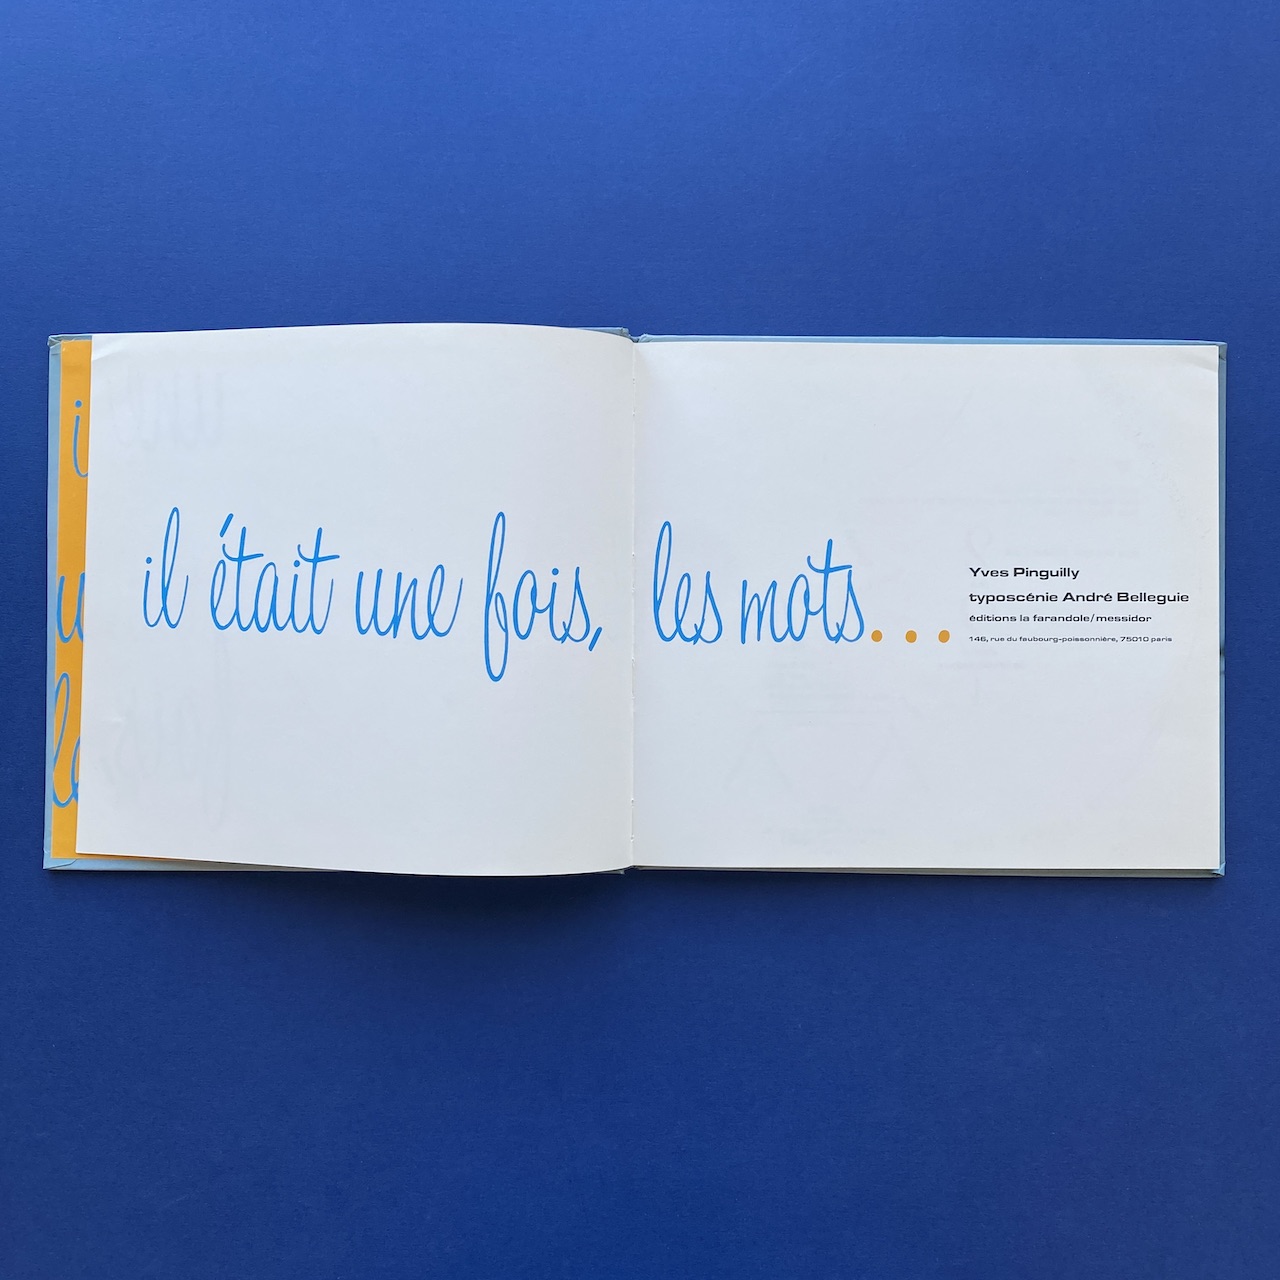 il était une fois, les mots...
Yves Pinguilly
typoscénie André Belleguie
éditions la farandole/messidor
146, rue du faubourg-poissonnière, 75010 paris